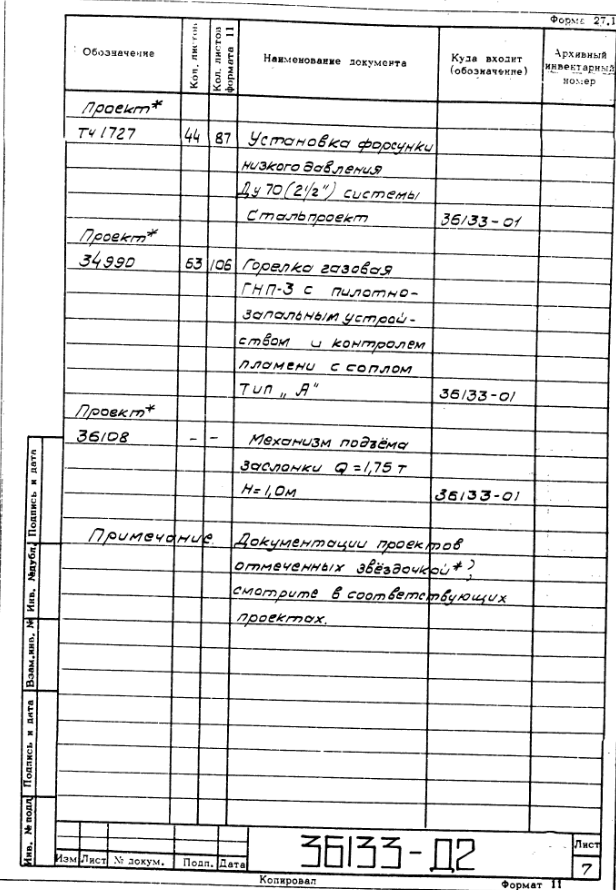 Форма 27.1
Обозначение | Кол. листов | Кол. листов формата 11 | Наименование документа | Куда входит (обозначение) | Архивный инвентарный номер
Проект*
ТЧ 1727 | 44 | 87 | Установка форсунки
низкого давления
Ду 70 (2 1/2") системы
Стальпроект | 36133-01
Проект*
34990 | 53 | 106 | Горелка газовая
ГНП-3 с пилотно-
запальным устрой-
ством и контролем
пламени с соплом
Тип „А" | 36133-01
Проект*
36108 | - | - | Механизм подъёма
заслонки Q = 1,75 т
H = 1,0м | 36133-01
Примечание. Документации проектов
отмеченных звёздочкой *)
смотрите в соответствующих
проектах.
Подпись и дата
Инв. № дубл.
Взам. инв. №
Подпись и дата
Инв. № подл.
Изм Лист № докум. Подп. Дата
36133-Д2
Лист
7
Копировал
Формат 11